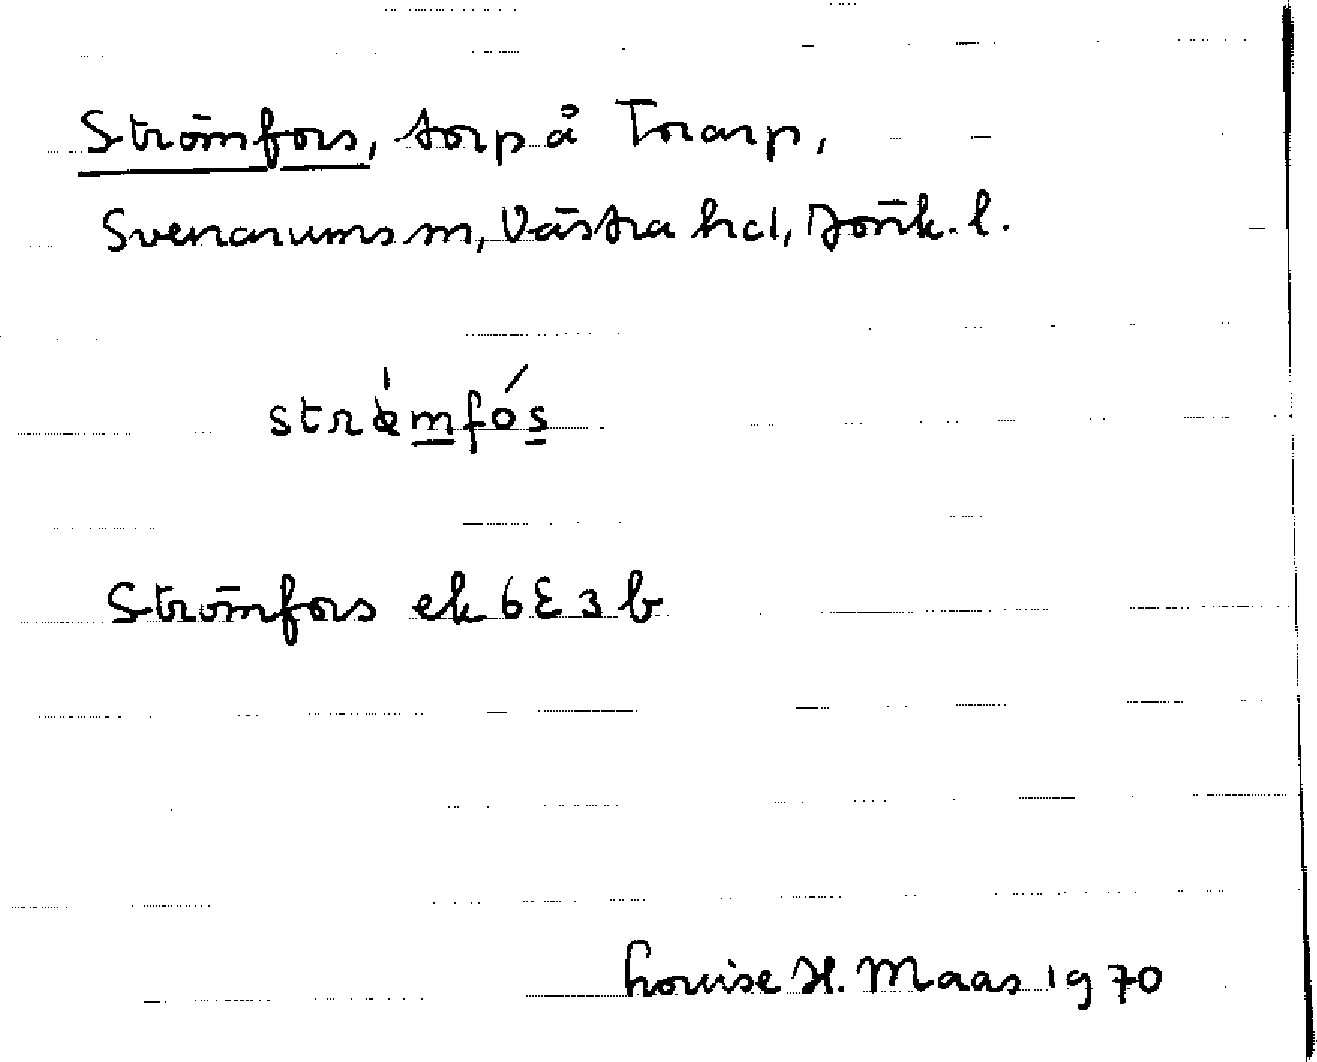 Strömfors, torp å Torarp,
Svenarums sn, Västra hd, Jönk. l.
Strömfors ek 6E3b
Louise H. Maas 1970